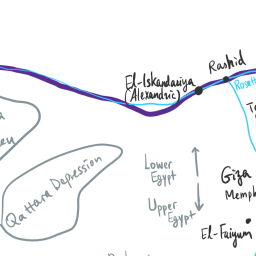 Rashid
El-Iskandariya
(Alexandria)
Rosett
Qattara Depression
Lower
Egypt
Upper
Egypt
Giza
Memph
El-Faiyum